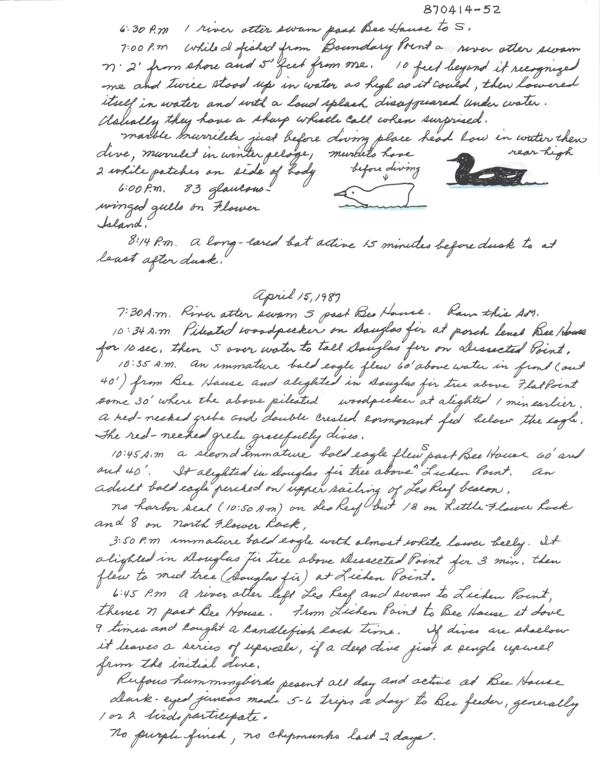 870414-52
6:30 P.M 1 river otter swam past Bee House to S.
7:00 P.M While I fished from Boundary Point a river otter swam
N. 2' from shore and 5' feet from me. 10 feet beyond it recognized
me and twice stood up in water as high as it could, then lowered
itself in water and with a loud splash disappeared under water.
Usually they have a sharp whistle call when surprised.
Marble Murrelets just before diving place head low in water then
dive, murrelet in winter pelage, murrelets have rear high
2 while patches on side of body before diving
6:00 P.M. 83 glaucous-
winged gulls on Flower
Island.
8:14 P.m. A long-eared bat active 15 minutes before dusk to at
least after dusk.
April 15, 1987
7:30 A.m. River otter swam S past Bee House. Rain this A.M.
10:34 A.m Pileated woodpecker on Douglas fir at porch level Bee House
for 10 sec, then S over water to tall Douglas fir on Dissected Point.
10:35 A.m. An immature bald eagle flew 60' above water in front (out
40') from Bee House and alighted in Douglas fir tree above Flat Point
some 30' where the above pileated woodpecker at alighted 1 min earlier.
A red-necked grebe and double crested cormorant fed below the eagle.
The red-necked grebe gracefully dives.
10:45 A.m a second immature bald eagle flew S past Bee House 60' and
out 40'. It alighted in Douglas fir tree above Lichen Point. An
adult bald eagle perched on upper railing of Leo Reef beacon.
No harbor seal (10:50 A.m) on Leo Reef but 18 on Little Flower Rock
and 8 on North Flower Rock.
3:50 P.M immature bald eagle with almost white lower belly. It
alighted in Douglas Fir tree above Dissected Point for 3 min. then
flew to mid tree (Douglas fir) at Lichen Point.
6:45 P.M A river otter left Leo Reef and swam to Lichen Point,
thence N past Bee House. From Lichen Point to Bee House it dove
9 times and caught a candlefish each time. If dives are shallow
it leaves a series of upwells, if a deep dive just a single upwell
from the initial dive.
Rufous hummingbirds pesent all day and active at Bee House
Dark-eyed juncos made 5-6 trips a day to Bee feeder, generally
1 or 2 birds participate.
No purple finch, no chipmunks last 2 days.